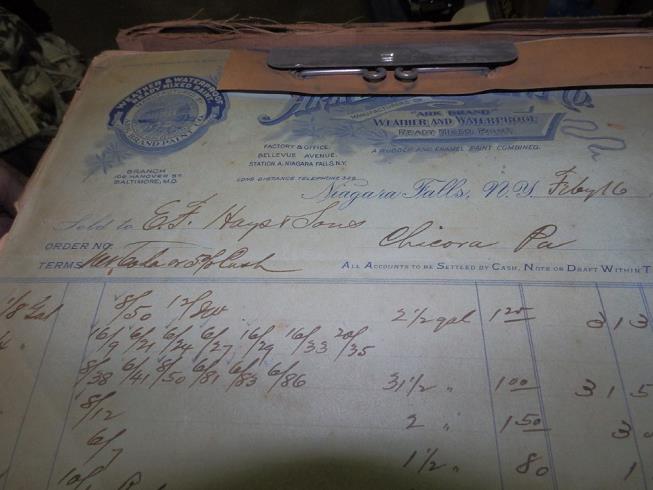 WEATHER & WATERPROOF
READY MIXED PAINT
ARK BRAND PAINT CO.
MANUFACTURERS OF
"ARK BRAND"
WEATHER AND WATERPROOF
READY MIXED PAINT
FACTORY & OFFICE
BELLEVUE AVENUE.
STATION A, NIAGARA FALLS, N.Y.
A RUBBER AND ENAMEL PAINT COMBINED.
BRANCH
109 HANOVER ST.
BALTIMORE, M.D.
LONG DISTANCE TELEPHONE 329
Niagara Falls, N.Y. Feby 16
Sold to E. F. Hays & Sons
ORDER NO. Chicora Pa
TERMS Cash ALL ACCOUNTS TO BE SETTLED BY CASH, NOTE OR DRAFT WITHIN T
1/8 Gal 8/50 2 1/2 gal 1 25 313
16/9 6/21 6/24 6/27 16/29 16/33 20/35
8/38 6/41 8/50 6/81 6/83 6/86 31 1/2 " 1 00 315
8/12 2 " 1 50 30
6/7 1 1/2 " 80 1